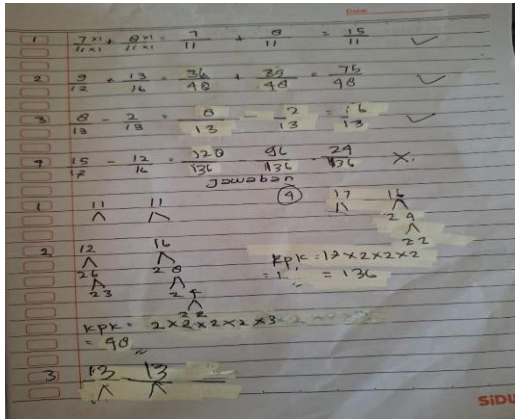 Date
1 7×1/11×1 + 8×1/11×1 = 7/11 + 8/11 = 15/11 ✓
2 9/12 + 13/16 = 36/48 + 39/48 = 75/48 ✓
3 8/13 - 2/13 = 8/13 - 2/13 = 6/13 ✓
4 15/17 - 12/16 = 120/136 96/136 - 24/136 ×
Jawaban
1 11 11
4 17 16
2 4
2 2
2. 12 16
2 6 2 8
2 3 2 4
2 2
KPK = 17×2×2×2
= 136
KPK = 2×2×2×2×3
= 48
3 13 13
SiDU